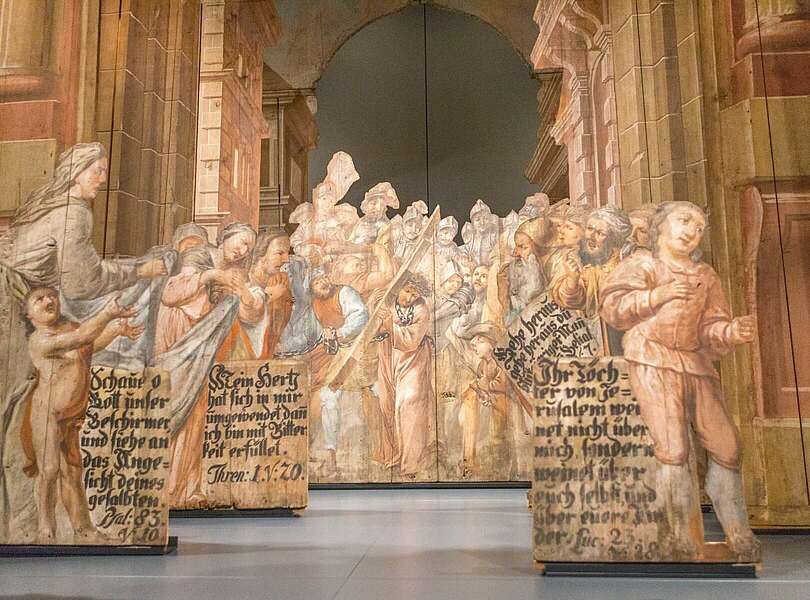 Schaue o
Gott unser
Beschirmer
und siehe an
das Ange-
sicht deines
gesalbten
Psal: 83.
V. 10.
Mein Hertz
hat sich in mir
umgewendet dañ
ich bin mit Bitter
keit erfüllet.
Thren: 1. V: 20.
Gehe heraus
gehe heraus Du
Man
Ihr Töch-
ter von Je-
rusalem wei
net nicht über
mich sondern
weinet über
euch selbst und
über euere Kin
der. Luc: 23.
V. 28.